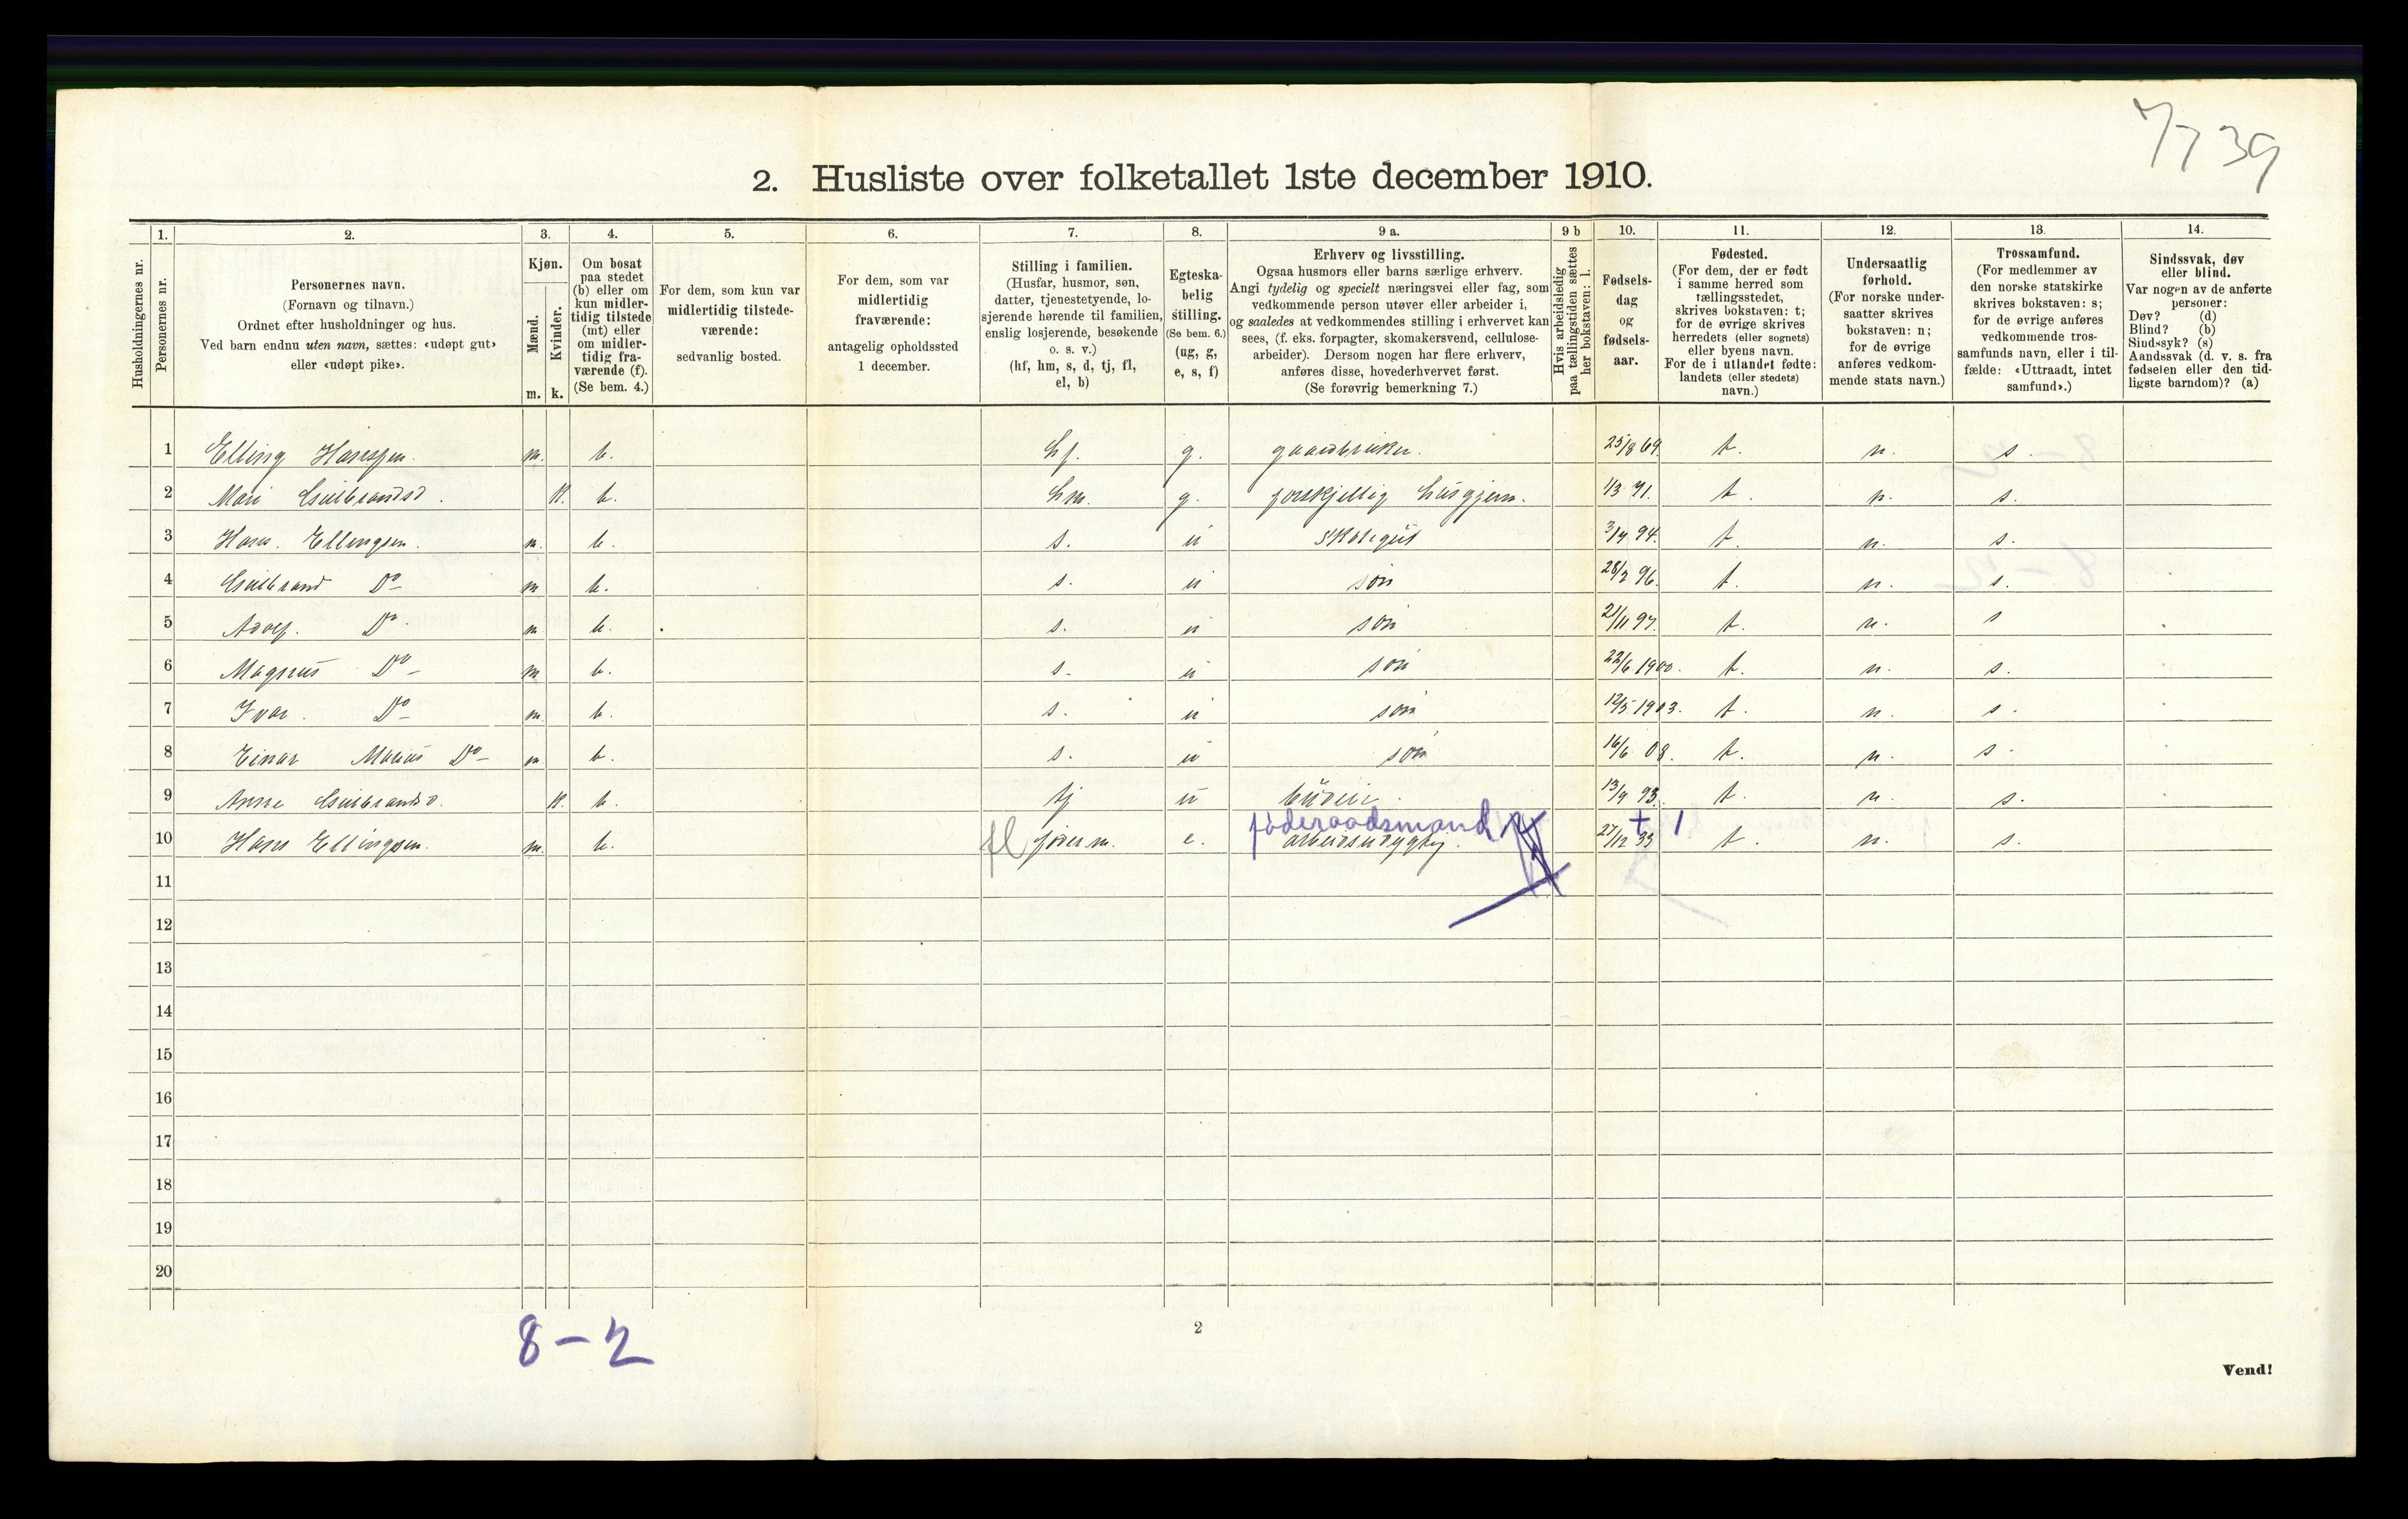 7739
2. Husliste over folketallet 1ste december 1910.
1. 2. 3. 4. 5. 6. 7. 8. 9 a. 9 b 10. 11. 12. 13. 14.
Husholdningernes nr.
Personernes nr.
Personernes navn.
(Fornavn og tilnavn.)
Ordnet efter husholdninger og hus.
Ved barn endnu uten navn, sættes: «udøpt gut»
eller «udøpt pike».
Kjøn.
Mænd.
Kvinder.
m. k.
Om bosat
paa stedet
(b) eller om
kun midler-
tidig tilstede
(mt) eller
om midler-
tidig fra-
værende (f).
(Se bem. 4.)
For dem, som kun var
midlertidig tilstede-
værende:
sedvanlig bosted.
For dem, som var
midlertidig
fraværende:
antagelig opholdssted
1 december.
Stilling i familien.
(Husfar, husmor, søn,
datter, tjenestetyende, lo-
sjerende hørende til familien,
enslig losjerende, besøkende
o. s. v.)
(hf, hm, s, d, tj, fl,
el, b)
Egteska-
belig
stilling.
(Se bem. 6.)
(ug, g,
e, s, f)
Erhverv og livsstilling.
Ogsaa husmors eller barns særlige erhverv.
Angi tydelig og specielt næringsvei eller fag, som
vedkommende person utøver eller arbeider i,
og saaledes at vedkommendes stilling i erhvervet kan
sees, (f. eks. forpagter, skomakersvend, cellulose-
arbeider). Dersom nogen har flere erhverv,
anføres disse, hovederhvervet først.
(Se forøvrig bemerkning 7.)
Hvis arbeidsledig
paa tællingstiden sættes
her bokstaven: l.
Fødsels-
dag
og
fødsels-
aar.
Fødested.
(For dem, der er født
i samme herred som
tællingsstedet,
skrives bokstaven: t;
for de øvrige skrives
herredets (eller sognets)
eller byens navn.
For de i utlandet fødte:
landets (eller stedets)
navn.)
Undersaatlig
forhold.
(For norske under-
saatter skrives
bokstaven: n;
for de øvrige
anføres vedkom-
mende stats navn.)
Trossamfund.
(For medlemmer av
den norske statskirke
skrives bokstaven: s;
for de øvrige anføres
vedkommende tros-
samfunds navn, eller i til-
fælde: «Uttraadt, intet
samfund».)
Sindssvak, døv
eller blind.
Var nogen av de anførte
personer:
Døv? (d)
Blind? (b)
Sindssyk? (s)
Aandssvak (d. v. s. fra
fødselen eller den tid-
ligste barndom)? (a)
1 Elling Hanssen. m. b. hf. g. gaardbruker. 25/8 69. t. n. s.
2 Mari Gulbrandsd. k. b. hm. g. forskjellig husgjern. 1/3 71. t. n. s.
3 Hans. Ellingsen. m. b. s. u skolegut 3/4 94. t. n. s.
4 Gulbrand Do m b. s. u søn 28/2 96. t. n. s.
5 Adolf. Do. m. b. s. u søn 21/11 97. t. n. s
6 Magnus Do m b. s. u søn 22/6 1900. t. n. s.
7 Ivar. Do m. b. s. u søn 12/5 1903. t. n. s.
8 Einar Marius Do m. b. s. u søn 16/6 08. t. n. s.
9 Anne Gulbrandsd. k. b. tj u budeie. 13/9 93. t. n. s.
føderaadsmand + 1
10 Hans Ellingsen. m. b. fl føder m. e. arbeidsudygtig. 27/12 33 t. n. s.
11
12
13
14
15
16
17
18
19
20
8 – 2
2
Vend!